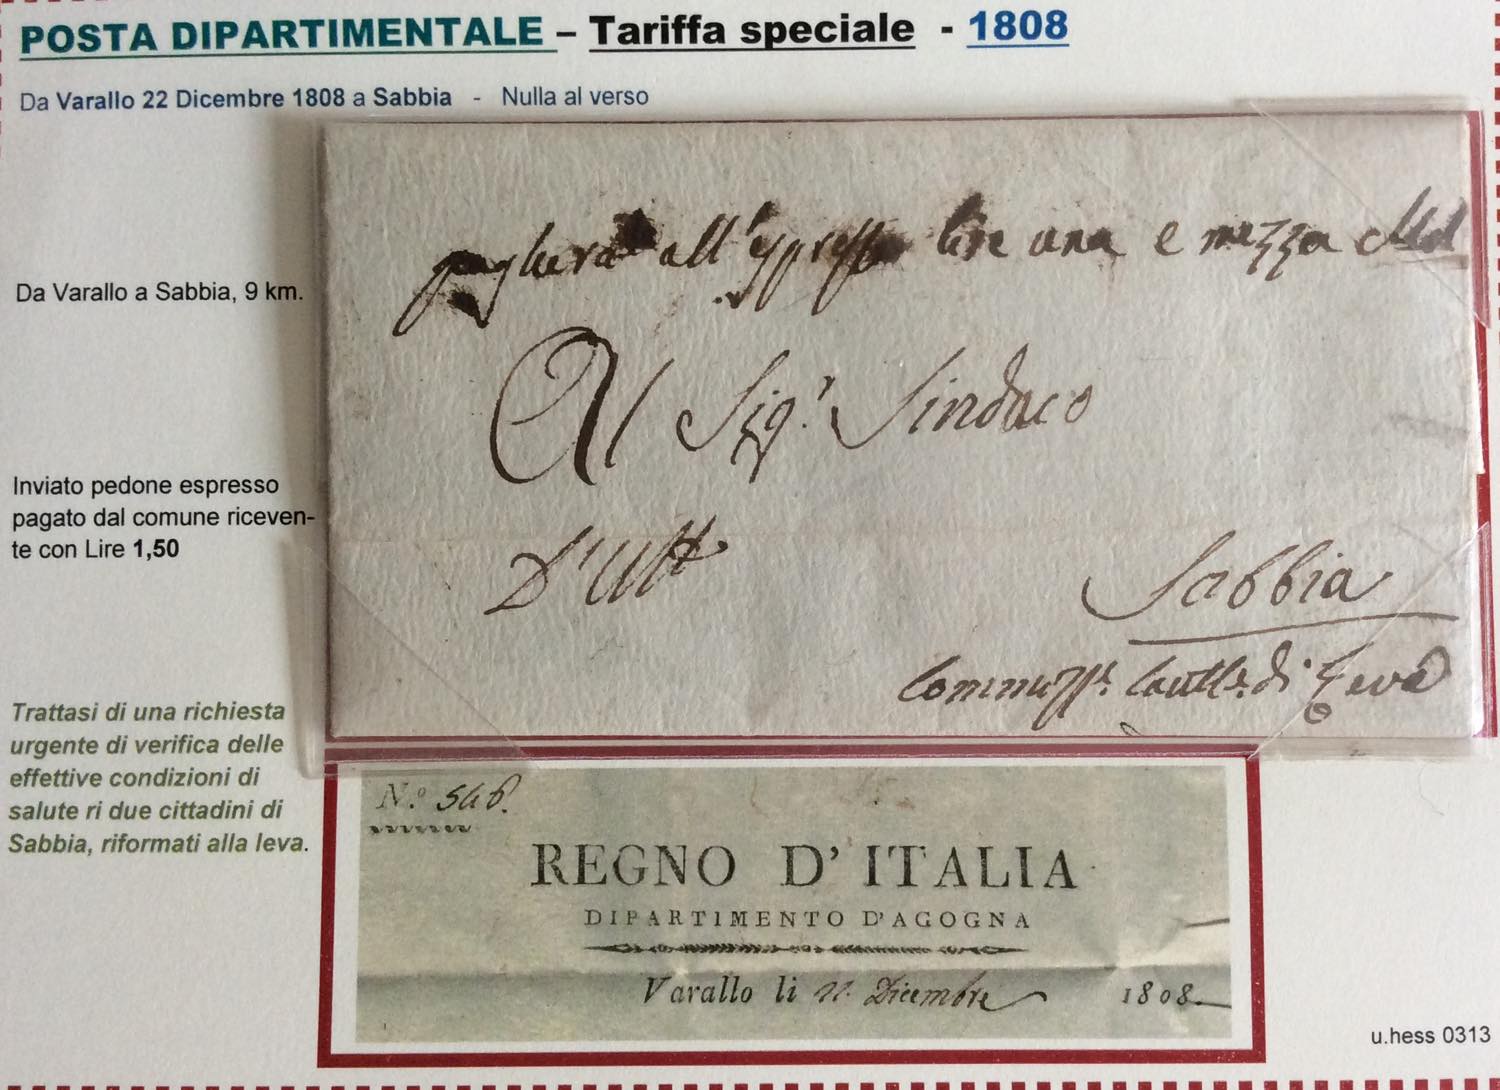 POSTA DIPARTIMENTALE – Tariffa speciale - 1808
Da Varallo 22 Dicembre 1808 a Sabbia - Nulla al verso
pagherà all'espresso lire una e mezza Mil
Da Varallo a Sabbia, 9 km.
Al Sig.r Sindaco
Inviato pedone espresso
pagato dal comune riceven-
te con Lire 1,50
D'Uff.
Sabbia
di Leva
Trattasi di una richiesta
urgente di verifica delle
effettive condizioni di
salute ri due cittadini di
Sabbia, riformati alla leva.
N.o 546.
REGNO D'ITALIA
DIPARTIMENTO D'AGOGNA
Varallo li 22 Dicembre 1808
u.hess 0313